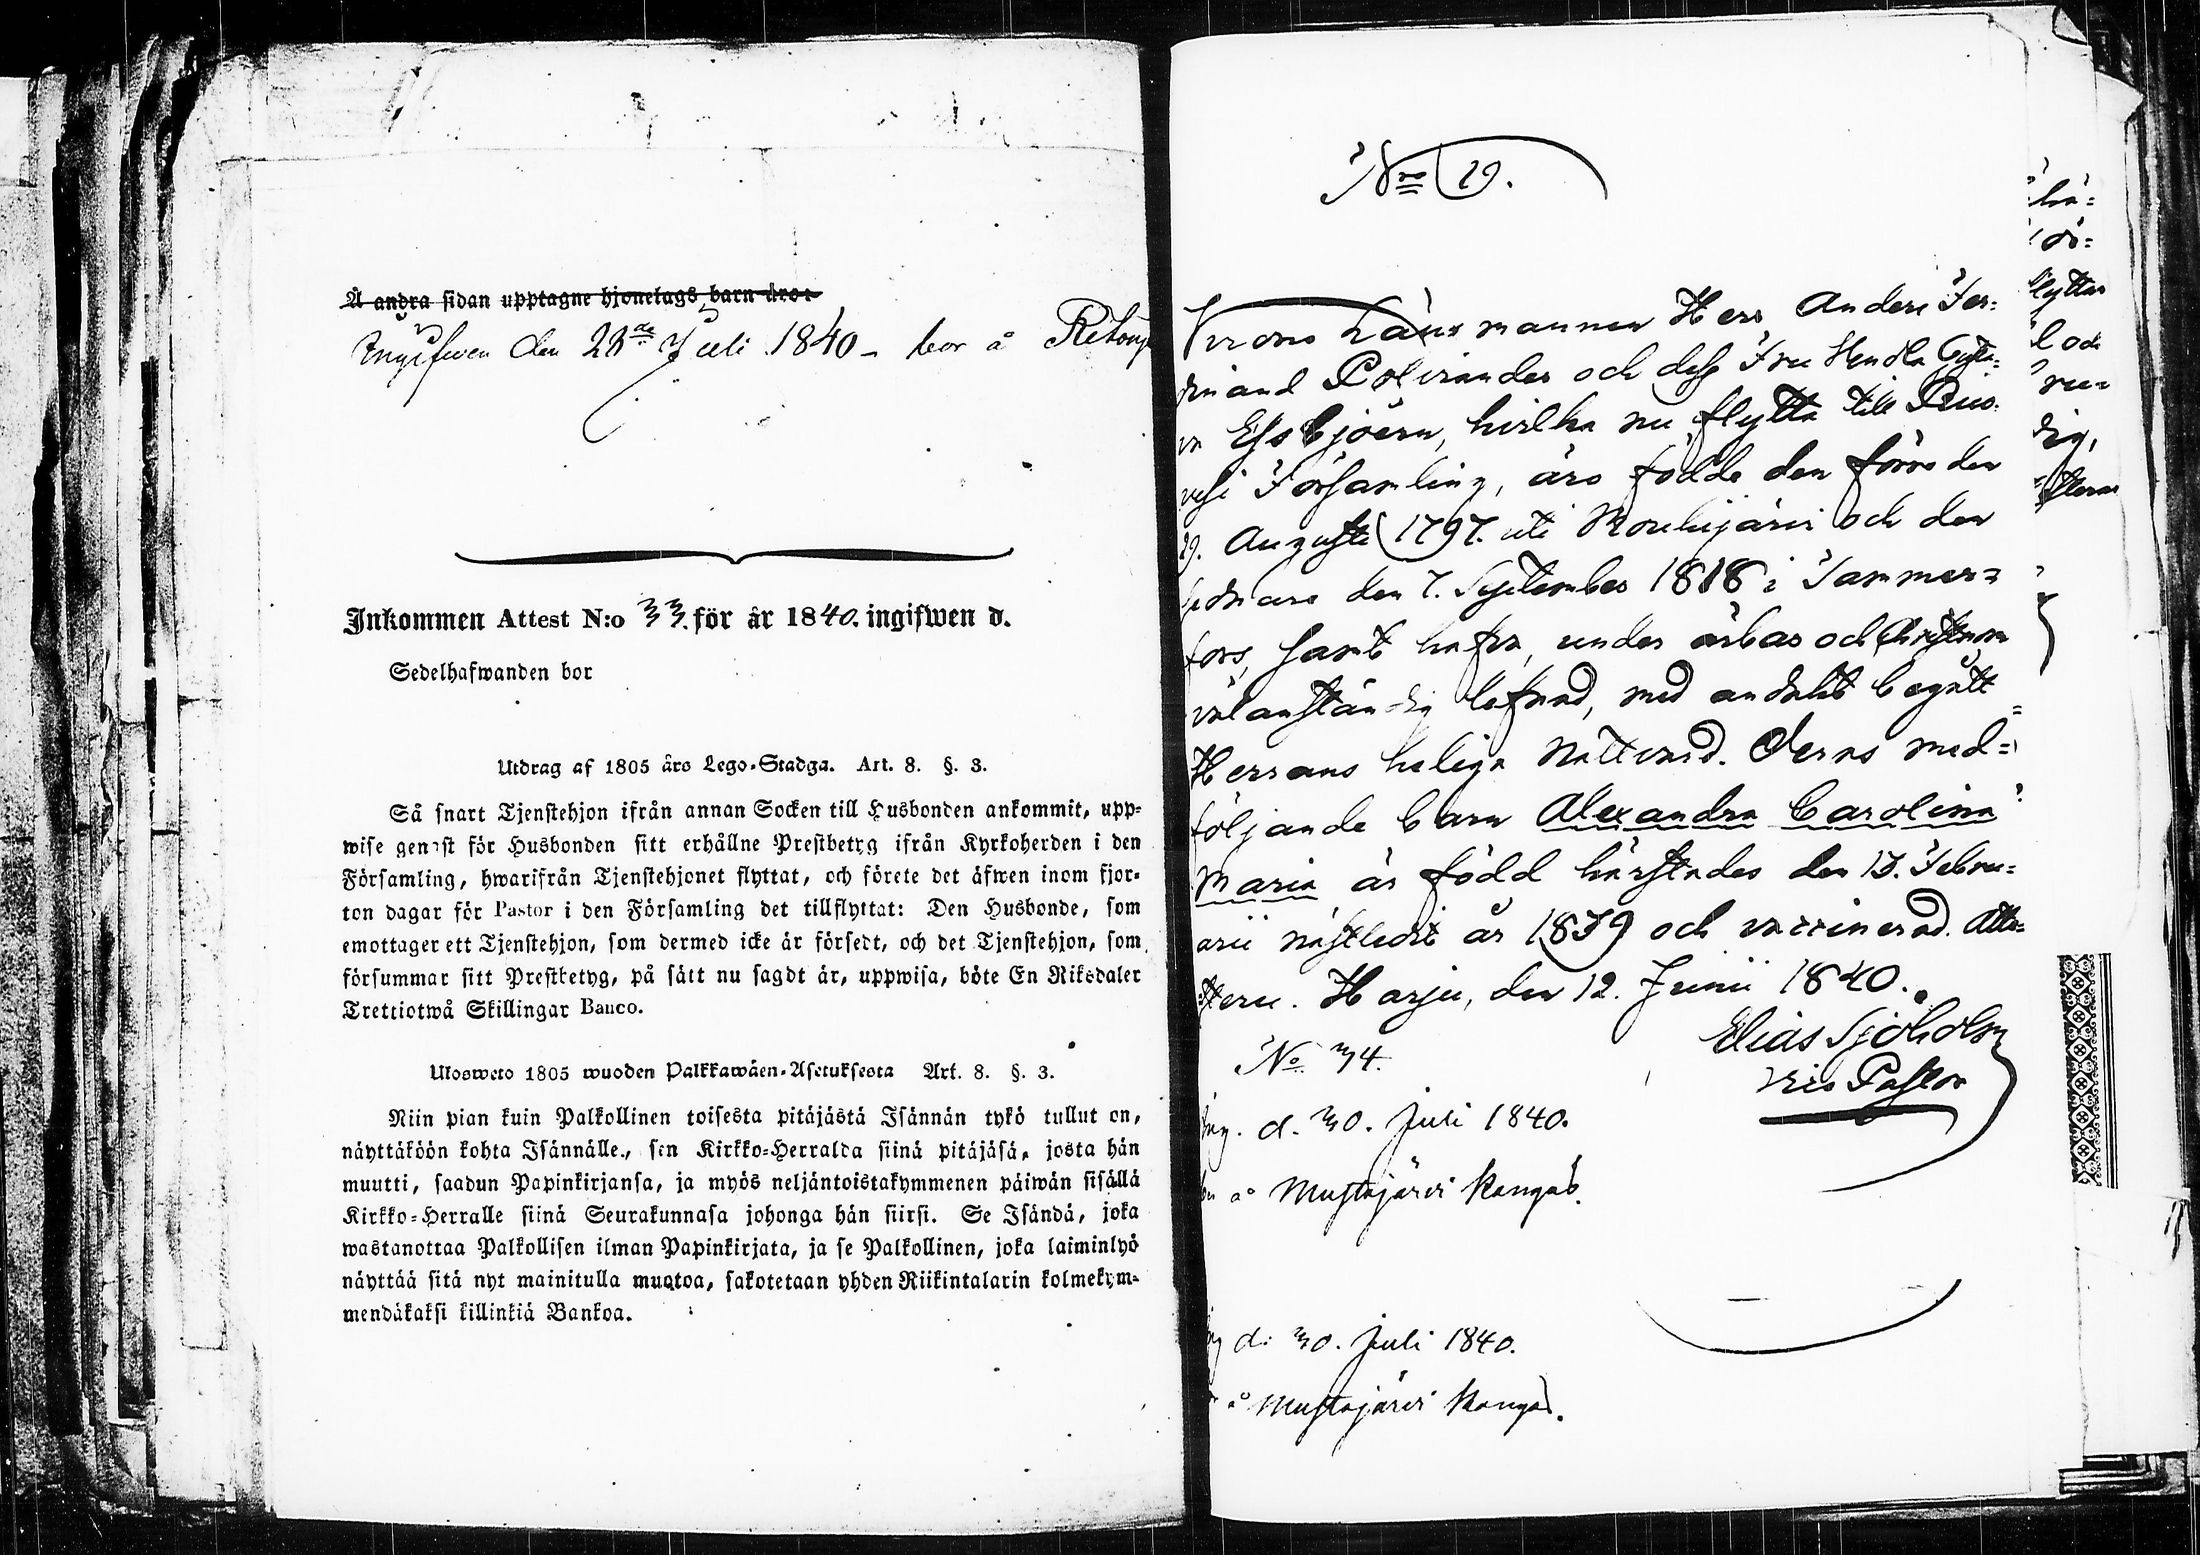 Å andra sidan upptagne hjonelags barn äro:
Ingifwen den 28de Juli 1840 – bor å
Inkommen Attest N:o 33. för år 1840. ingifwen d.
Sedelhafwanden bor
Utdrag af 1805 års Lego-Stadga. Art. 8. §. 3.
Så snart Tjenstehjon ifrån annan Socken till Husbonden ankommit, upp-
wise genast för Husbonden sitt erhållne Prestbetyg ifrån Kyrkoherden i den
Församling, hwarifrån Tjenstehjonet flyttat, och förete det äfwen inom fjor-
ton dagar för Pastor i den Församling det tillflyttat: Den Husbonde, som
emottager ett Tjenstehjon, som dermed icke är försedt, och det Tjenstehjon, som
försummar sitt Prestbetyg, på sätt nu sagdt är, uppwisa, böte En Riksdaler
Trettiotwå Skillingar Banco.
Ulosweto 1805 wuoden Palkkawäen-Asetuksesta Art. 8. §. 3.
Niin pian kuin Palkollinen toisesta pitäjästä Isännän tykö tullut on,
näyttäköön kohta Isännälle, sen Kirkko-Herralda siinä pitäjäsä, josta hän
muutti, saadun Papinkirjansa, ja myös neljäntoistakymmenen päiwän sisällä
Kirkko-Herralle siinä Seurakunnasa johonga hän siirsi. Se Isändä, joka
wastanottaa Palkollisen ilman Papinkirjata, ja se Palkollinen, joka laiminlyö
näyttää sitä nyt mainitulla muotoa, sakotetaan yhden Riikintalarin kolmekym-
mendäkaksi killinkiä Bankoa.
Nro 29.
Krono Länsmannen Herr Anders Fer=
dinand Polviander och dess Fru Hendla Gusta=
va Essbjöern, hvilka nu flytta till Ruo=
vesi Församling, äro födde den förre den
29. Augusti 1797. uti Mouhijärvi och den
sednare den 7. September 1818 i Tammer=
fors, samt hafva, under ärbar och Christeman
välanständig lefnad, med andakt begått
Herrans heliga Nattvard. Deras med=
följande barn Alexandra Carolina
Maria är född härstädes den 13. Febru=
arii nästledit år 1839 och vaccinerad. Atte=
steru. Harju, den 12. Junii 1840.
Elias Sjöholm
Vice Pastor
No 34.
Ing. d. 30. Juli 1840.
bor å Mustajärvi Kangas.
Ing d. 30. Juli 1840.
å Mustajärvi Kangas.